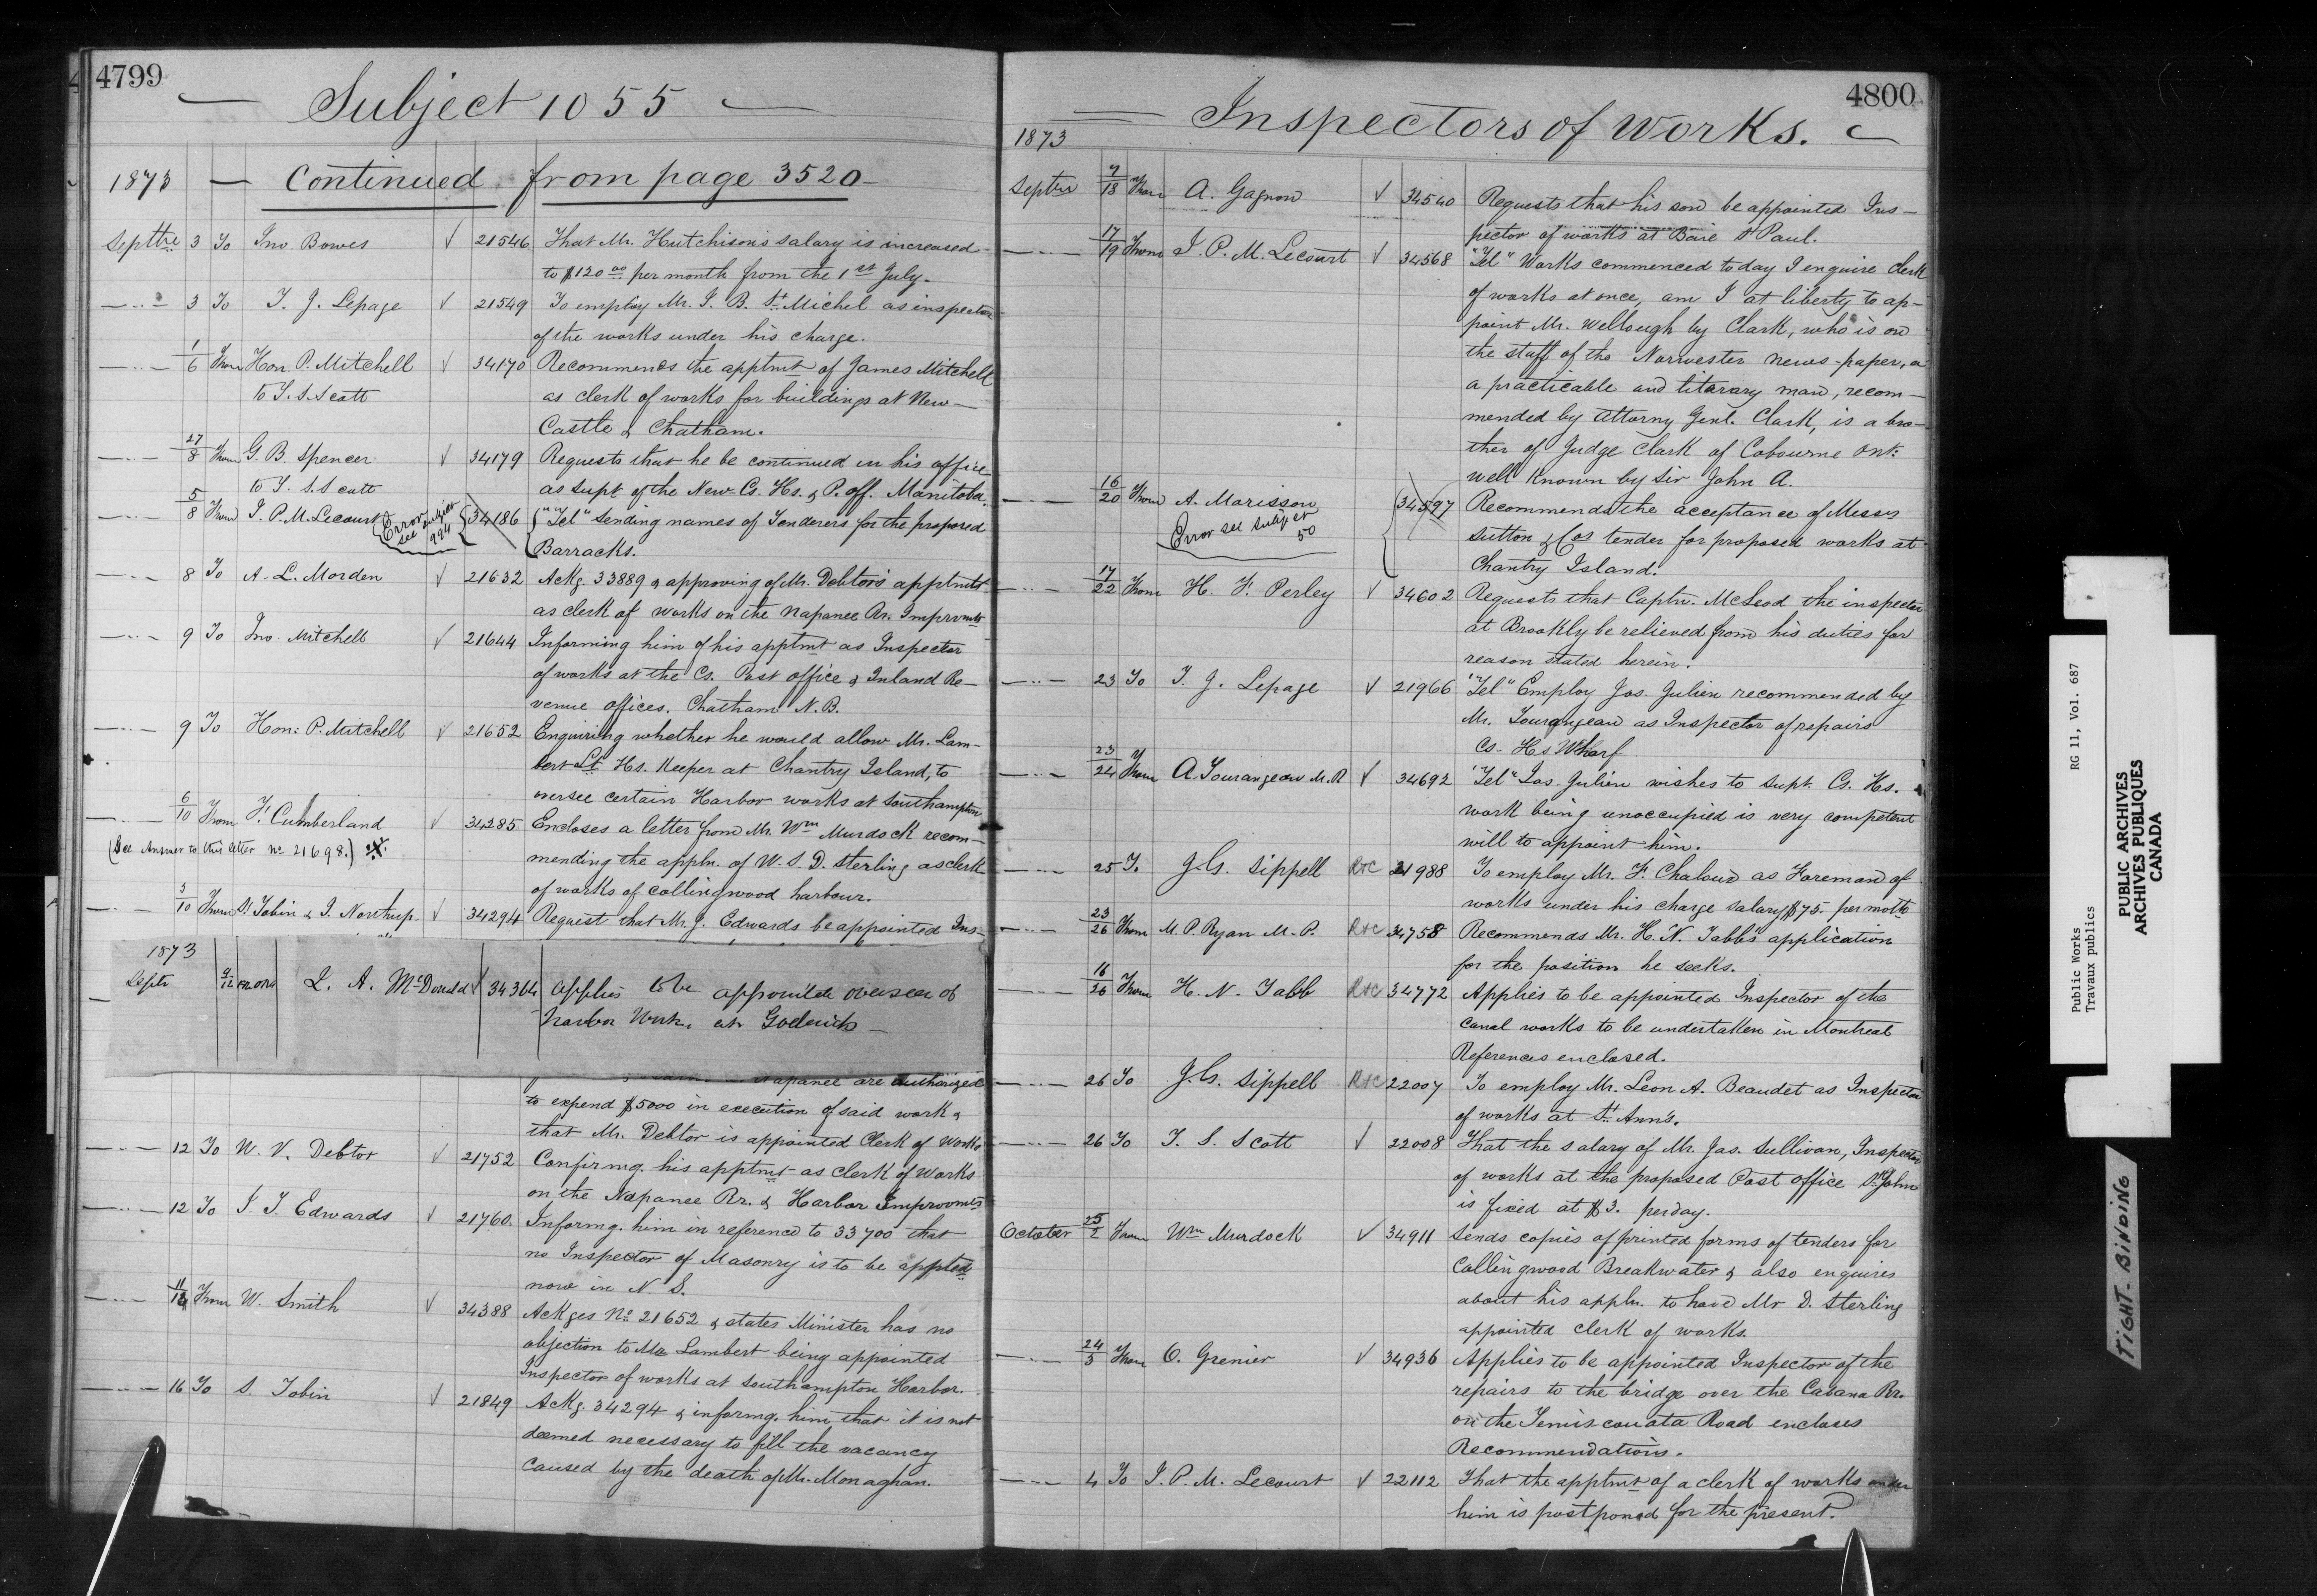 4799
Subject 1055
1873 — Continued from page 3520 —
Septbre 3 To Jno Bowes √ 21546 That Mr. Hutchison's salary is increased
to $120.00 per month from the 1st July.
—..— 3 To T. J. Lepage √ 21549 To employ Mr. J. B. St. Michel as inspector
of the works under his charge.
—..— 1/6 From Hon. P. Mitchell √ 34170 Recommends the apptmt of James Mitchell
to T. S. Scott as clerk of works for buildings at New-
Castle & Chatham.
—..— 27/8 From G. B. Spencer √ 34179 Requests that he be continued in his office
to T. S. Scott as Supt of the New Cs. Hs. & P. Off. Manitoba.
—..— 5/8 From J. P. M. Lecourt (Error see subject 994) 34186 "Tel" Sending names of Tenderers for the proposed
Barracks.
—..— 8 To A. L. Morden √ 21632 Ackg. 33889 & approving of Mr. Debtor's apptmt
as clerk of works on the Napanee Rr. Improvmts
—..— 9 To Jno. Mitchell √ 21644 Informing him of his apptmt as Inspector
of works at the Cs. Post office & Inland Re-
venue offices. Chatham N.B.
—..— 9 To Hon: P. Mitchell √ 21652 Enquiring whether he would allow Mr. Lam-
bert Lt Hs. Keeper at Chantry Island, to
oversee certain Harbor works at Southampton
—..— 6/10 From F. Cumberland √ 34285 Encloses a letter from Mr. Wm Murdock recom-
(See Answer to this letter No 21698.) mending the appln. of W. S. D. Sterling as clerk
of works of Collingwood harbour.
—..— 3/10 From S. Tobin & J. Northup. √ 34294 Request that Mr. J. Edwards be appointed Ins-
1873
Septr 9/12 From L. A. McDonald √ 34364 Applies to be appointed overseer of
harbor Works at Goderich —
Napanee are authorized
to expend $5000 in execution of said work &
that Mr. Debtor is appointed Clerk of Works
—..— 12 To W. V. Debtor √ 21752 Confirmg. his apptmt as clerk of Works
on the Napanee Rr. & Harbor Improvmts
—..— 12 To J. T. Edwards √ 21760. Informg. him in reference to 33700 that
no Inspector of Masonry is to be appted
now in N S.
—..— From W. Smith √ 34388 Ackges No 21652 & states Minister has no
objection to Mr Lambert being appointed
Inspector of works at Southampton Harbor.
—..— 16 To S. Tobin √ 21849 Ackg. 34294 & informg. him that it is not
deemed necessary to fill the vacancy
caused by the death of Mr. Monaghan.
4800
Inspectors of Works.
1873
Septbr 7/18 From A. Gagnon √ 34540 Requests that his son be appointed Ins-
pector of works at Baie St Paul.
—..— 17/19 From J. P. M. Lecourt √ 34568 "Tel" Works commenced today I enquire clerk
of works at once, am I at liberty to ap-
point Mr. Wellough by Clark, who is on
the staff of the Norwester news-paper, a
a practicable and literary man, recom-
mended by Attorny Genl. Clark, is a bro-
ther of Judge Clark of Cobourne Ont:
well known by Sir John A.
—..— 16/20 From A. Morisson 34597 Recommends the acceptance of Messrs
Error see subject 50 Sutton & Cos tender for proposed works at
Chantry Island.
—..— 17/22 From H. F. Perley √ 34602 Requests that Captn. McLeod the inspector
at Brookly be relieved from his duties for
reason stated herein.
—..— 23 To T. J. Lepage √ 21966 "Tel" Employ Jas. Julien recommended by
Mr. Tourangeau as Inspector of repairs
Cs. Hs Wharf
—..— 23/24 From A. Tourangeau M.P. √ 34692 "Tel" Jas. Julien wishes to Supt. Cs. Hs.
work being unoccupied is very competent
will to appoint him.
—..— 25 To J. G. Sippell R&C 21988 To employ Mr. F. Chaloud as Foreman of
works under his charge salary $75. per moth
—..— 23/26 From M. P. Ryan M.P. R&C 34758 Recommends Mr. H. N. Tabb's application
for the position he seeks.
—..— 16/26 From H. N. Tabb R&C 34772 Applies to be appointed Inspector of the
canal works to be undertaken in Montreal
References enclosed.
—..— 26 To J. G. Sippell R&C 22007 To employ Mr. Leon A. Beaudet as Inspector
of works at St. Ann's.
—..— 26 To T. S. Scott √ 22008 That the salary of Mr. Jas. Sullivan, Inspector
of works at the proposed Post office St John
is fixed at $3. per day.
October 25/2 From Wm Murdock √ 34911 Sends copies of printed forms of tenders for
Collingwood Breakwater & also enquires
about his appln. to have Mr D. Sterling
appointed clerk of works.
—..— 24/3 From O. Grenier √ 34936 Applies to be appointed Inspector of the
repairs to the bridge over the Cabana Rr.
on the Temiscouata Road encloses
Recommendations.
—..— 4 To J. P. M. Lecourt √ 22112 That the apptmt of a clerk of works under
him is postponed for the present.
Public Works RG 11, Vol. 687
Travaux publics
PUBLIC ARCHIVES
ARCHIVES PUBLIQUES
CANADA
TIGHT-BINDING